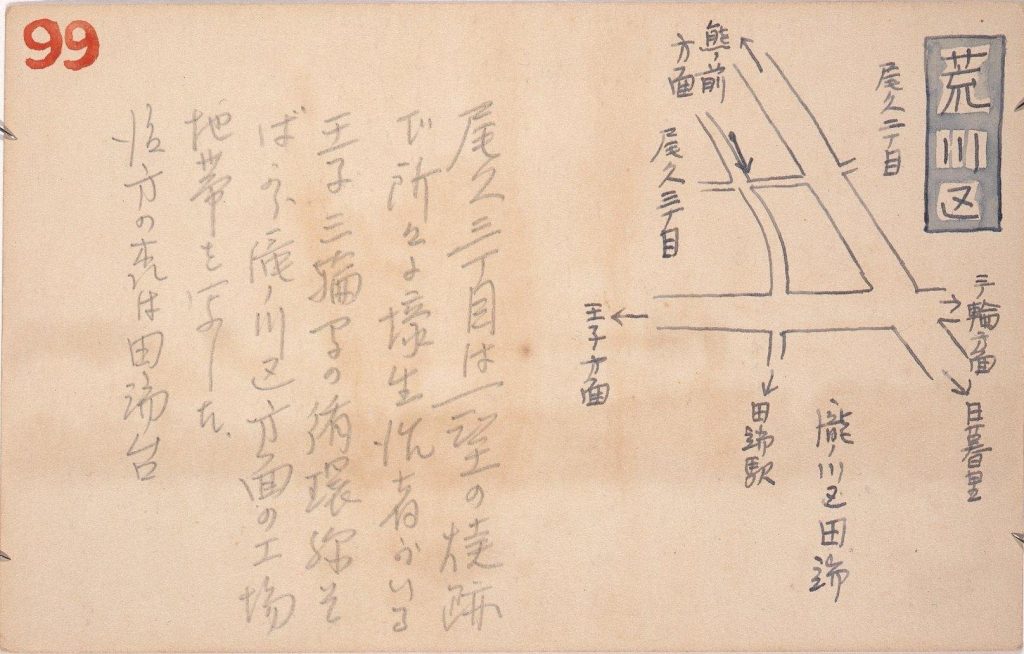 99
荒川区
尾久二丁目
熊ノ前
方面
尾久三丁目
三ノ輪方面
王子方面
日暮里
田端駅
瀧ノ川区田端
尾久三丁目は一望の焼跡
で所々に壕生活者がいる
王子三輪間の循環線を
滝ノ川区方面の工場
地帯を写した、
後方の森は田端台